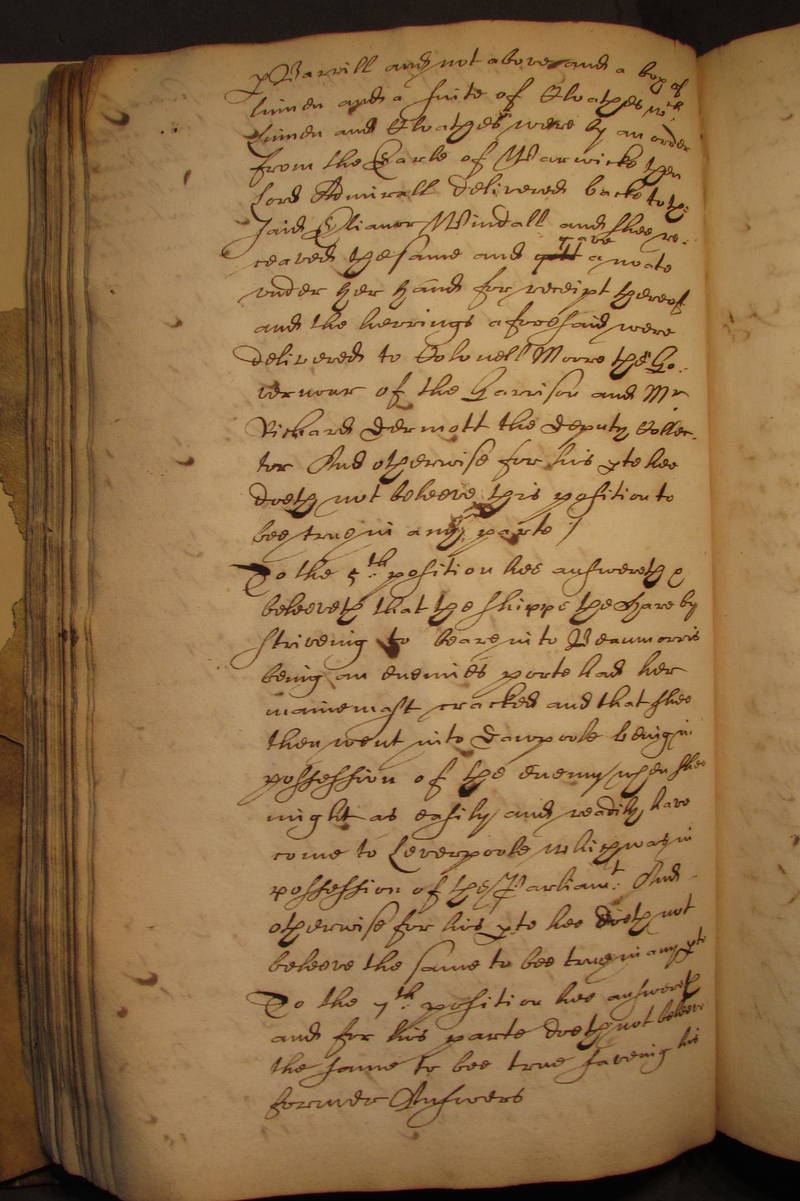 p Barrill and not above and a box of
linnen and a suite of Cloathes wch
linnen and Cloathes were by an order
from the Earle of Warwicke then
Lord Admirall delivered backe to the
said Elianor Windall and shee re-
ceaved the same and gave a noate
under her hand for receipt thereof
and the herrings aforesaid were
delivered to Colonell Moore the Go-
vernour of the Garrison and Mr
Richard Dermott the deputy Collec-
tor And otherwise for his pte hee
doeth not beleeve this position to
bee true in any parte /
To the 5th position hee answereth &
beleeveth that the shippe the Hare by
striveing to beare in to Beaumorris
being an enemies porte had her
mainemast cracked and that shee
then went into Dawpoole being in
possession of the enemy when shee
might as easily and readily have
come to Leverpoole which was in
possession of the Parliamt: And
otherwise for his pte hee doeth not
beleeve the same to bee true in any pte
To the 7th position hee answereth
and for his parte doeth not beleeve
the same to bee true saveing his
former Answers